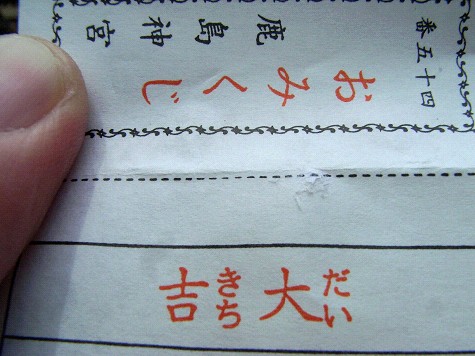 番五十四
鹿島神宮
おみくじ
大吉
だいきち